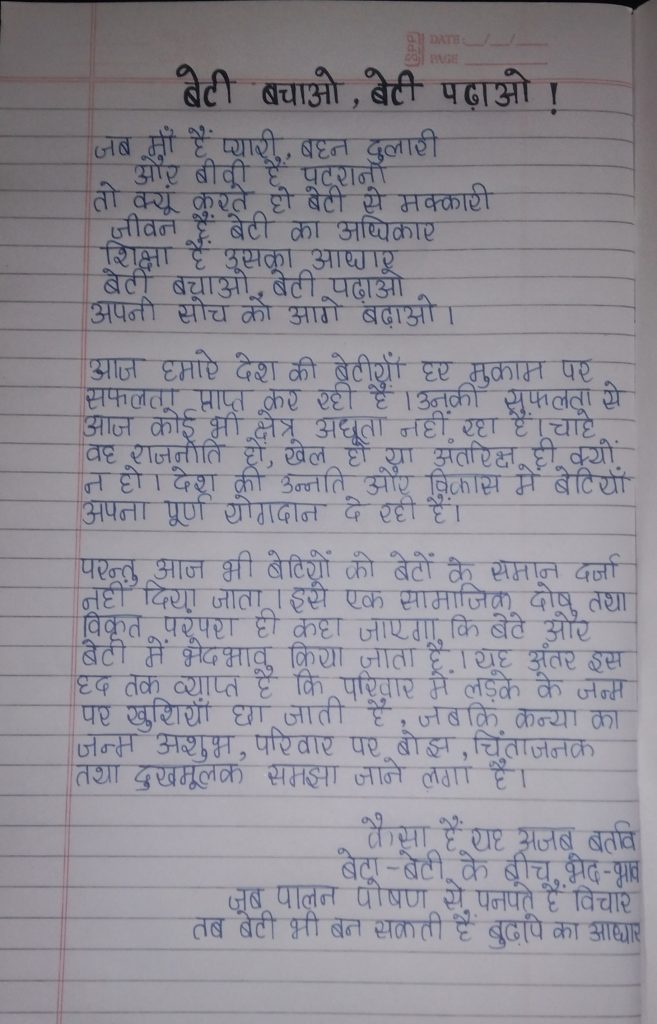 DATE: __/__/____
PAGE ________
बेटी बचाओ, बेटी पढ़ाओ !
जब माँ हैं प्यारी, बहन दुलारी
और बीवी हैं पटरानी
तो क्यूं करते हो बेटी से मक्कारी
जीवन हैं बेटी का अधिकार
शिक्षा हैं उसका आधार
बेटी बचाओ, बेटी पढ़ाओ
अपनी सोच को आगे बढ़ाओ।
आज हमारे देश की बेटीयाँ हर मुकाम पर
सफलता प्राप्त कर रही हैं। उनकी सफलता से
आज कोई भी क्षेत्र अछूता नहीं रहा हैं। चाहे
वह राजनीति हो, खेल हो या अंतरिक्ष ही क्यों
न हो। देश की उन्नति और विकास में बेटियाँ
अपना पूर्ण योगदान दे रही हैं।
परन्तु आज भी बेटियों को बेटों के समान दर्जा
नहीं दिया जाता। इसे एक सामाजिक दोष तथा
विकृत परंपरा ही कहा जाएगा कि बेटे और
बेटी में भेदभाव किया जाता है। यह अंतर इस
हद तक व्याप्त है कि परिवार में लड़के के जन्म
पर खुशियाँ छा जाती है, जबकि कन्या का
जन्म अशुभ, परिवार पर बोझ, चिंताजनक
तथा दुखमूलक समझा जाने लगा है।
कैसा हैं यह अजब बर्ताव
बेटा-बेटी के बीच भेद-भाव
जब पालन पोषण से पनपते हैं विचार
तब बेटी भी बन सकती हैं बुढ़ापे का आधार